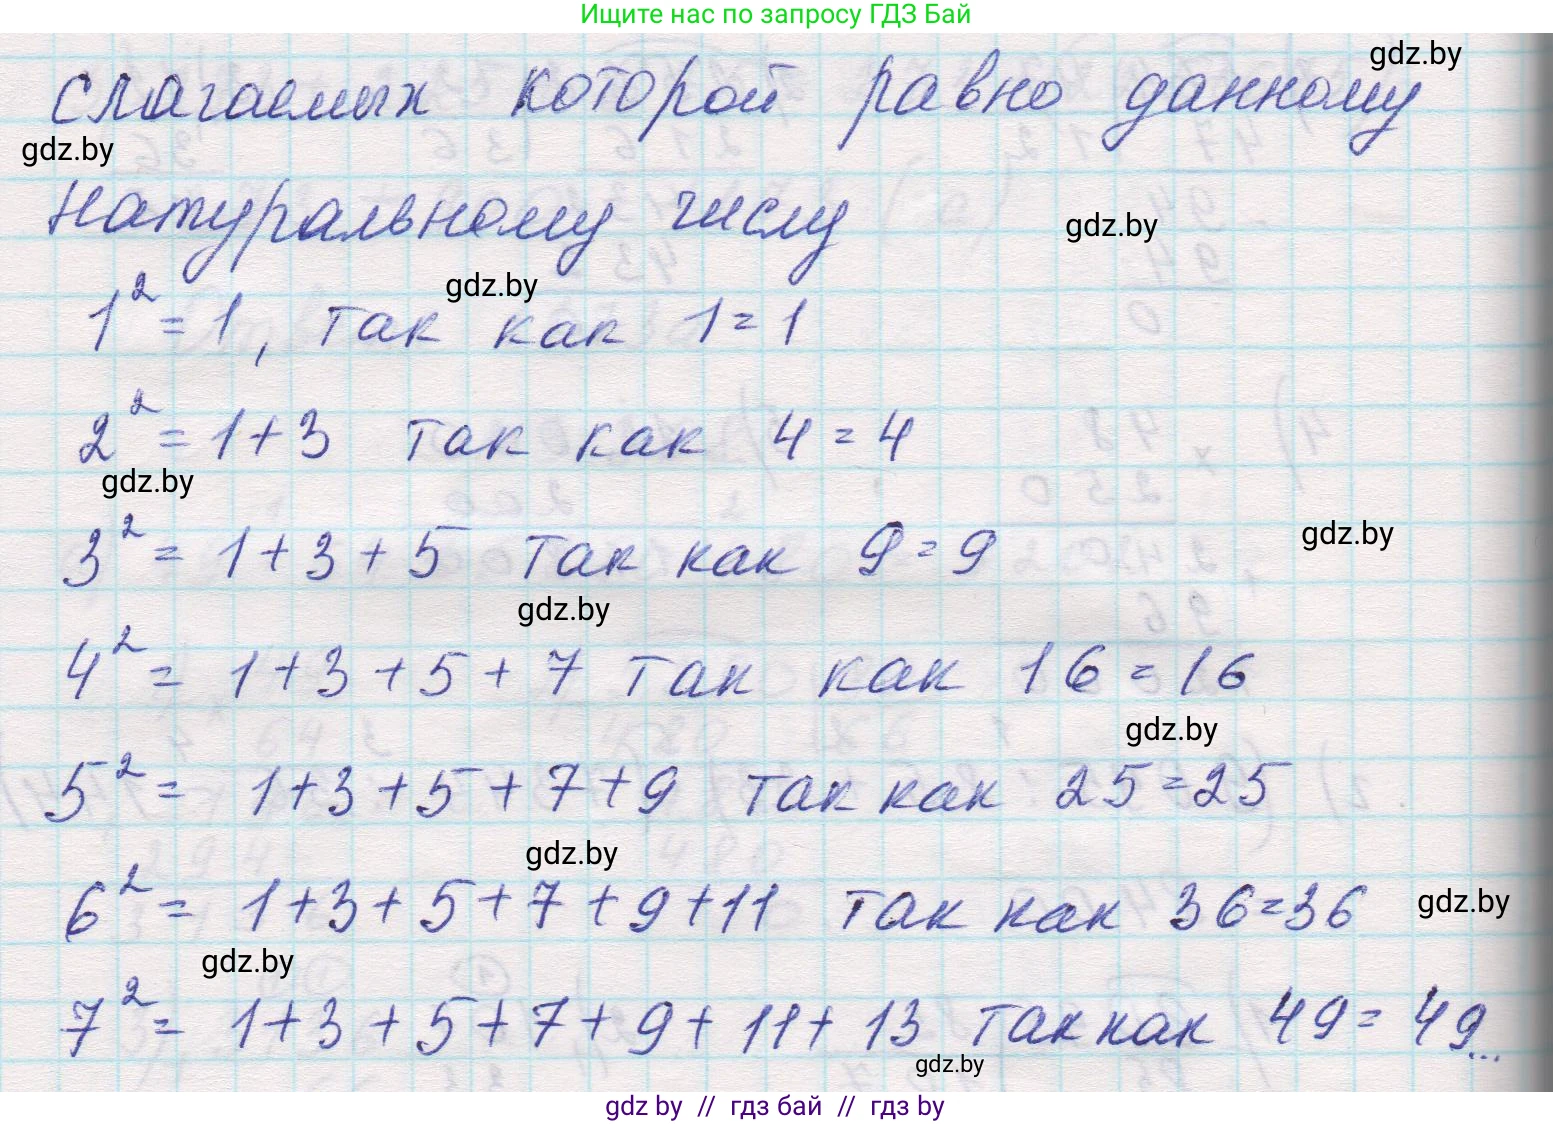 Ищите нас по запросу ГДЗ Бай
gdz.by
слагаемых которой равно данному
gdz.by
натуральному числу
gdz.by
gdz.by
1² = 1, так как 1 = 1
2² = 1 + 3 так как 4 = 4
gdz.by
gdz.by
3² = 1 + 3 + 5 так как 9 = 9
gdz.by
4² = 1 + 3 + 5 + 7 так как 16 = 16
gdz.by
5² = 1 + 3 + 5 + 7 + 9 так как 25 = 25
gdz.by
6² = 1 + 3 + 5 + 7 + 9 + 11 так как 36 = 36
gdz.by
gdz.by
7² = 1 + 3 + 5 + 7 + 9 + 11 + 13 так как 49 = 49...
gdz.by
gdz by // гдз бай // гдз by